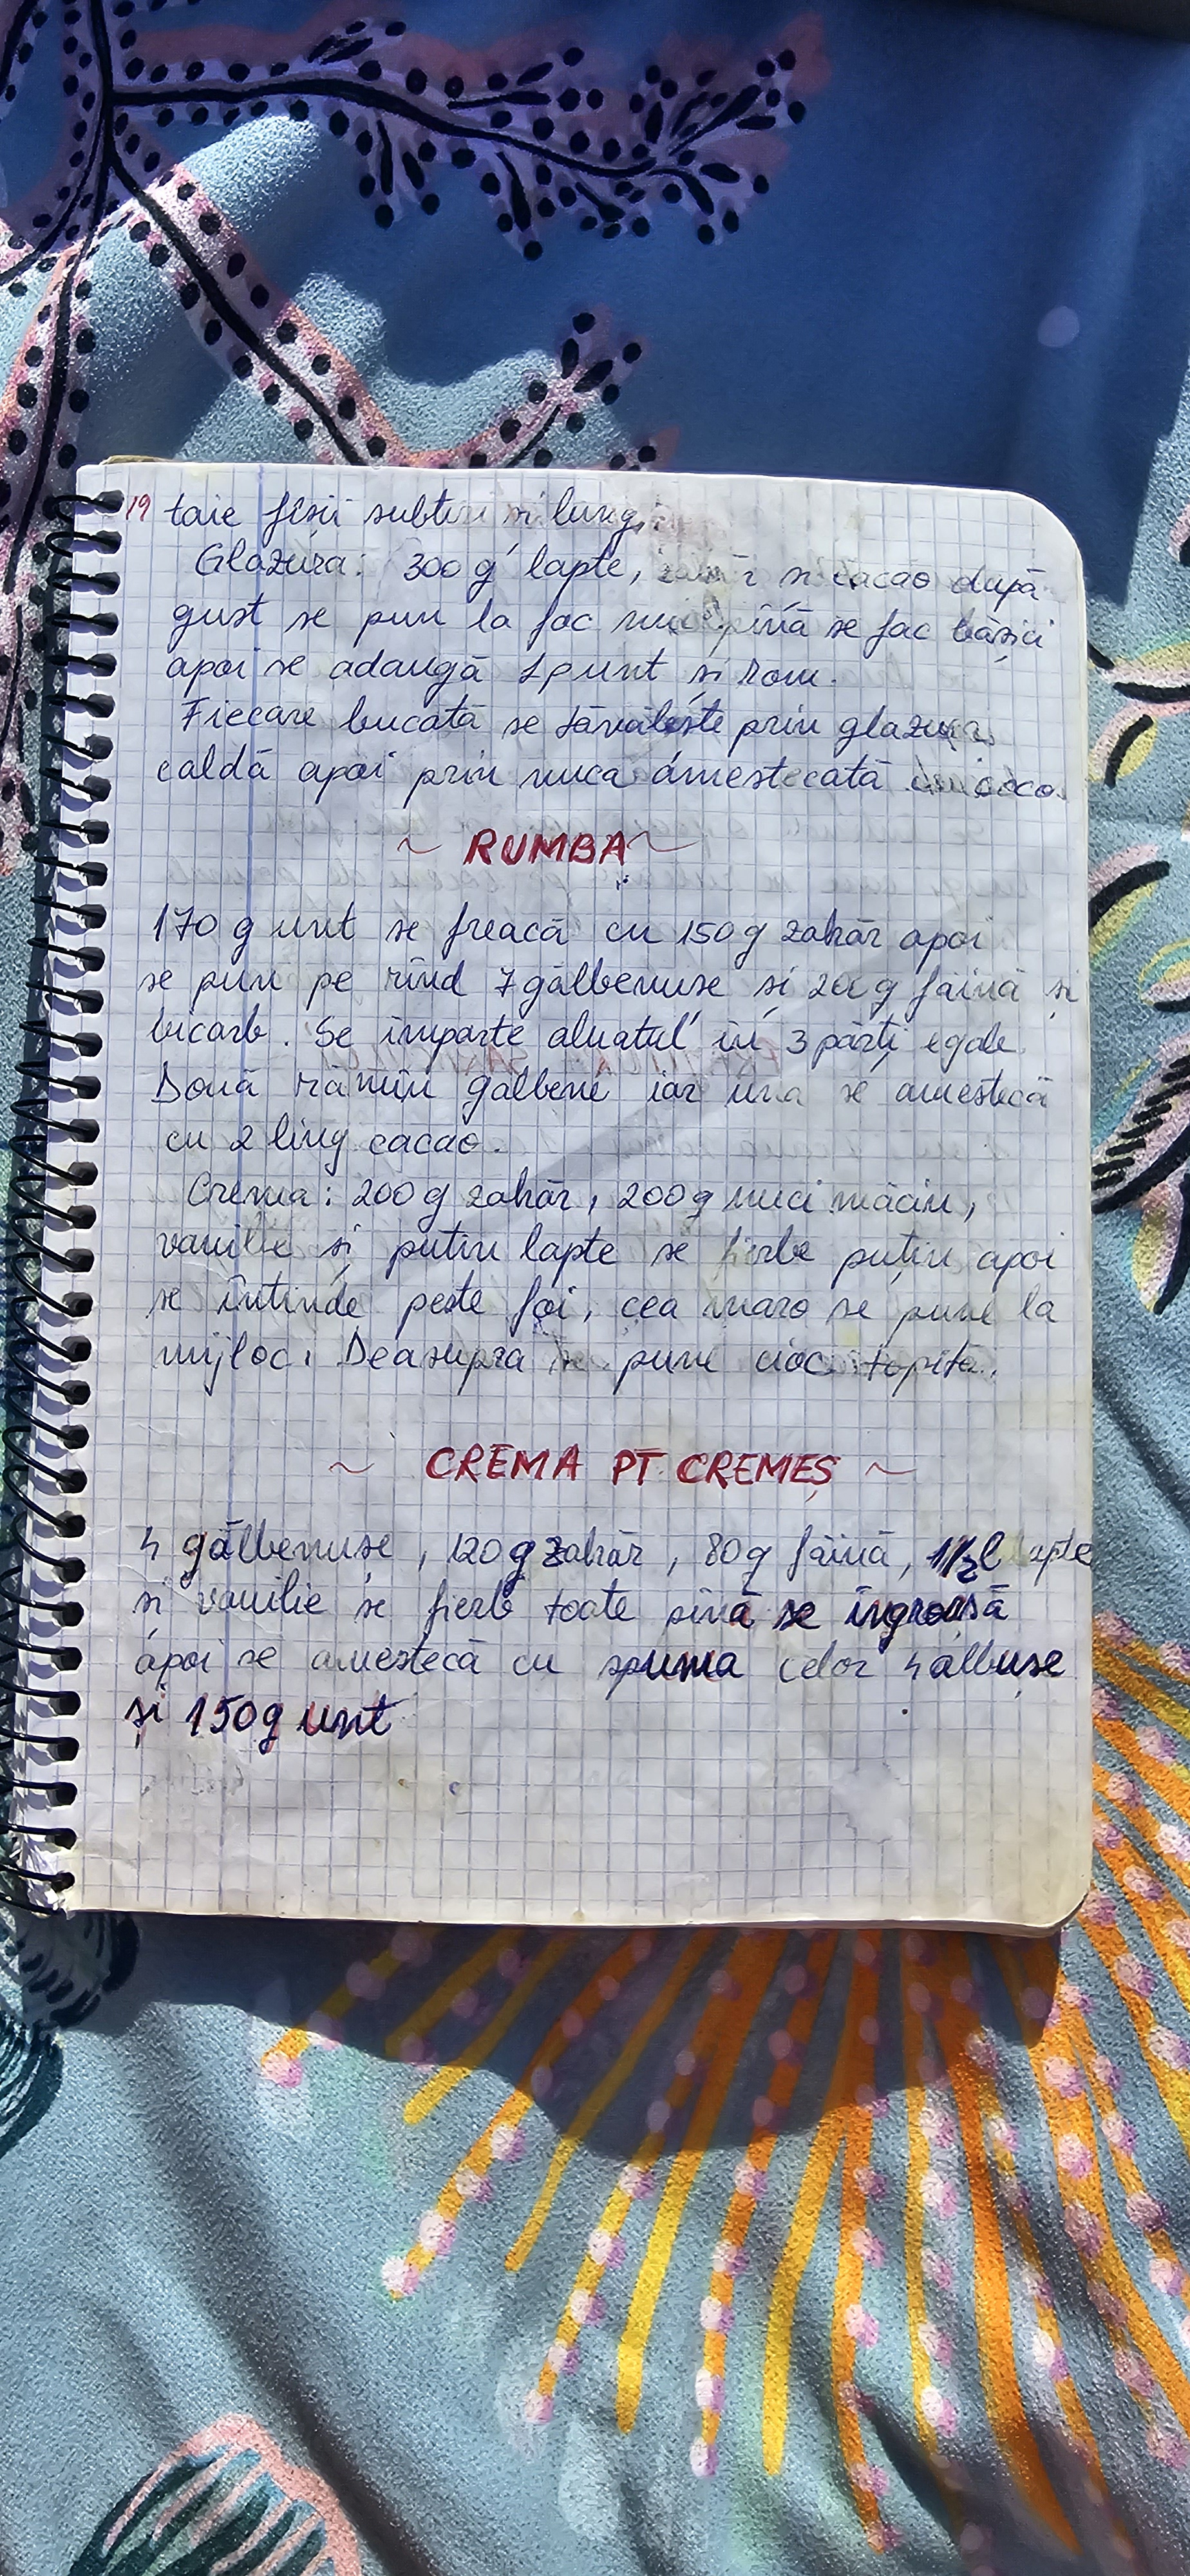 19 taie fîsii subtiri si lungi
Glazúra: 300 g lapte, si cacao după
gust se pun la foc pînă se fac bășici
apoi se adaugă 1 p unt și rom.
Fiecare bucată se tăvălește prin glazura
caldă apoi prin nuca amestecată cocos
~ RUMBA ~
170 g unt se freacă cu 150 g zahăr apoi
se pun pe rînd 7 gălbenuse și 200 g făină și
bicarb. Se împarte aluatul în 3 părți egale.
Două rămîn galbene iar una se amestecă
cu 2 ling cacao.
Crema: 200 g zahăr, 200 g nuci măcin,
vanilie și putin lapte se fierbe puțin apoi
se întinde peste foi, cea maro se pune la
mijloc. Deasupra se pune cioc topită.
~ CREMA PT CREMEȘ ~
4 gălbenușe, 120 g zahăr, 80 g făină, 1/2 l lapte
si vanilie se fierb toate pînă se îngroașă
apoi se amestecă cu spuma celor 4 albușe
și 150 g unt